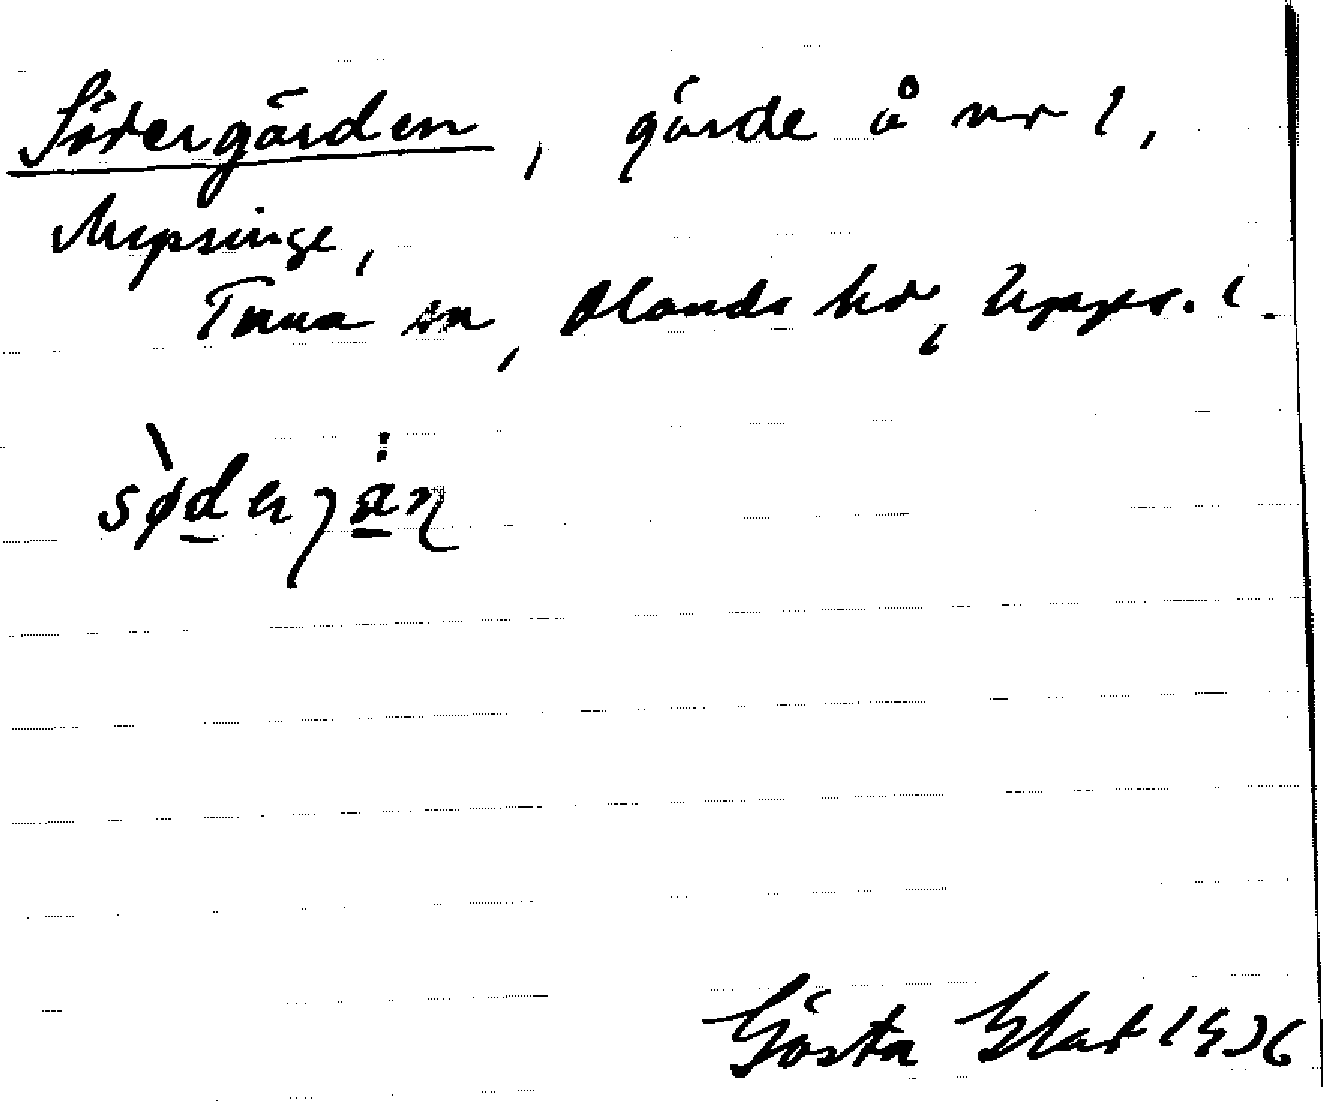 Södergärden, gärde å nr 1,
Mysinge,
Tuna sn, Olands hd, Upps. l.
sødærjän
Gösta Glat 1936